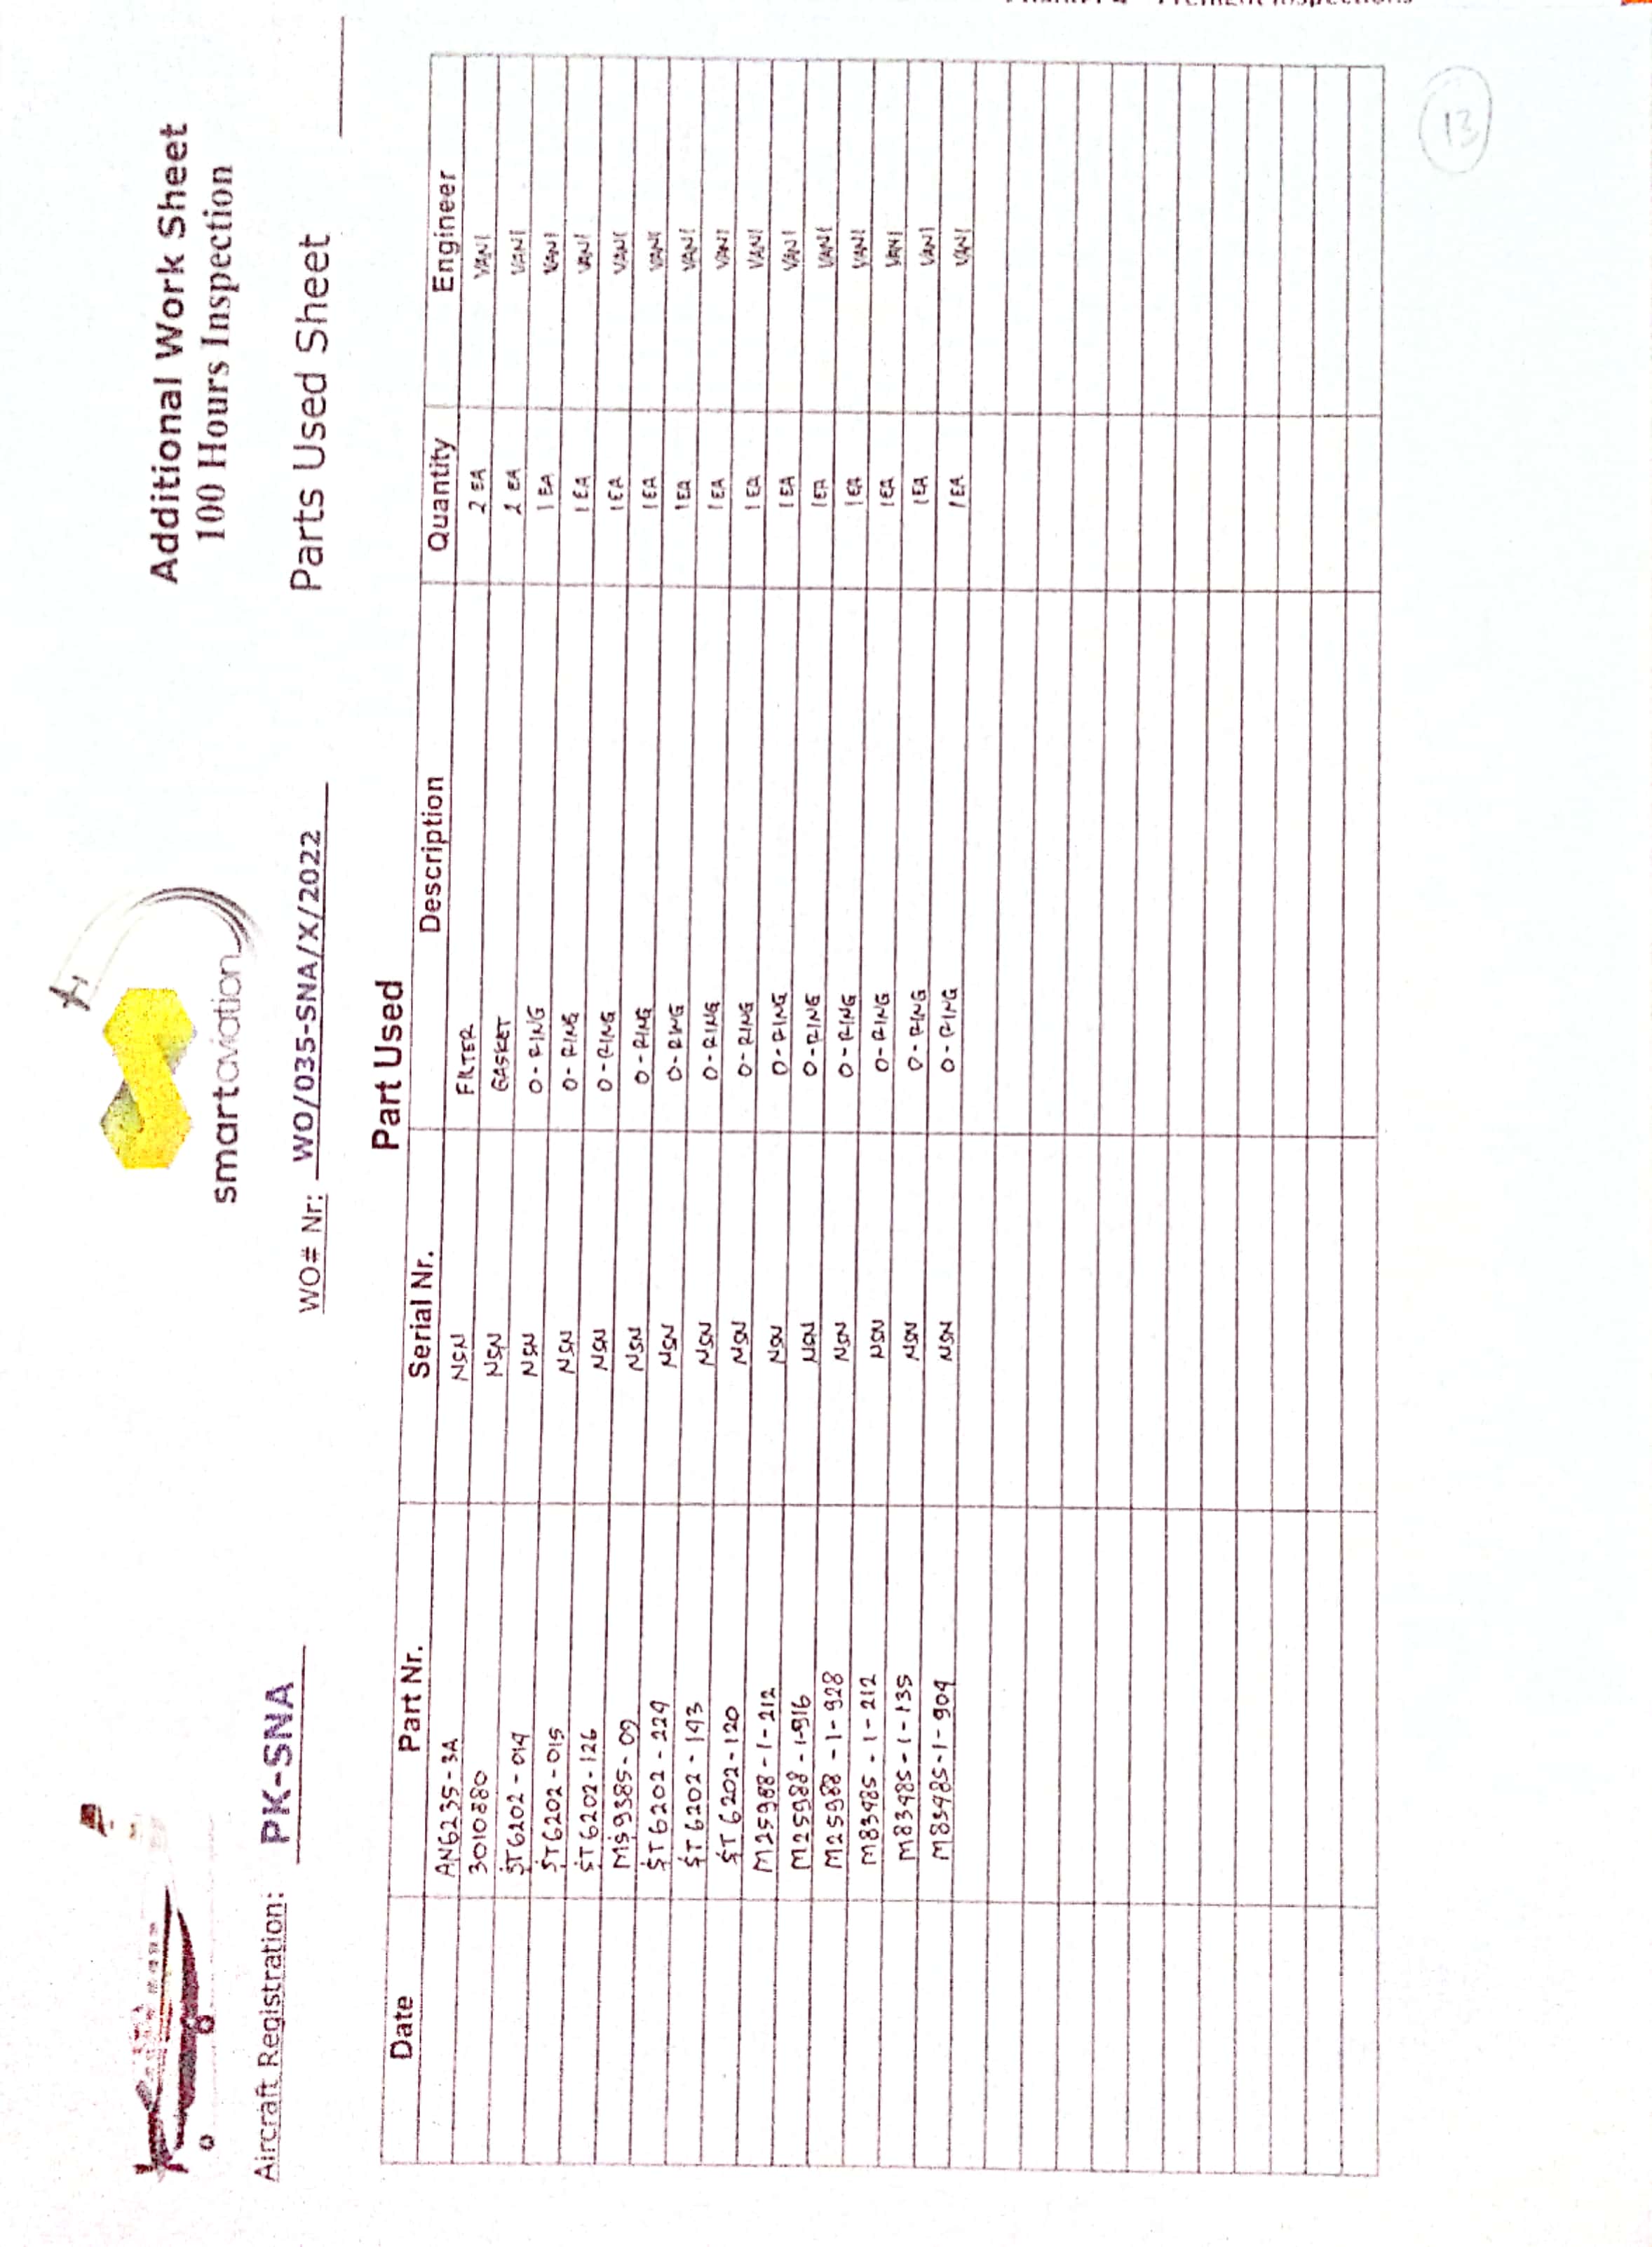 Additional Work Sheet
100 Hours Inspection
smartaviation
Aircraft Registration: PK-SNA WO# Nr: WO/035-SNA/X/2022 Parts Used Sheet
Part Used
Date Part Nr. Serial Nr. Description Quantity Engineer
AN6235-3A NSN FILTER 2 EA VANI
3010880 NSN GASKET 2 EA VANI
ST6202-014 NSN O-RING 1 EA VANI
ST6202-015 NSN O-RING 1 EA VANI
ST6202-126 NSN O-RING 1 EA VANI
MS9385-09 NSN O-RING 1 EA VANI
ST6202-224 NSN O-RING 1 EA VANI
ST6202-143 NSN O-RING 1 EA VANI
ST6202-120 NSN O-RING 1 EA VANI
M25988-1-212 NSN O-RING 1 EA VANI
M25988-1-916 NSN O-RING 1 EA VANI
M25988-1-928 NSN O-RING 1 EA VANI
M83485-1-212 NSN O-RING 1 EA VANI
M83485-1-135 NSN O-RING 1 EA VANI
M83485-1-904 NSN O-RING 1 EA VANI
13